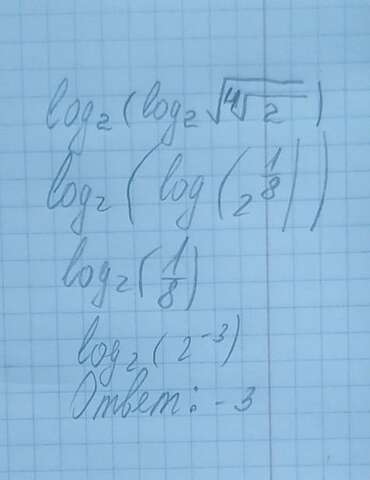 log₂(log₂ √(⁴√2))
log₂(log(2^(1/8)))
log₂(1/8)
log₂(2⁻³)
Ответ: -3